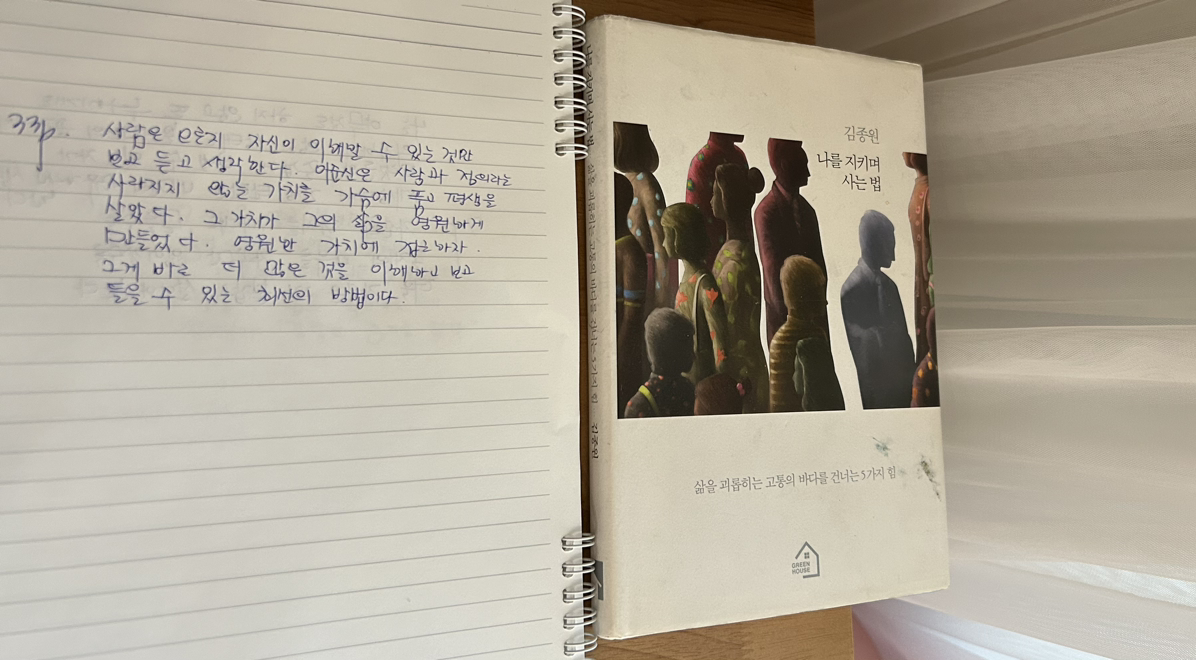 33p.
사람은 오로지 자신이 이해할 수 있는 것만
보고 듣고 생각한다. 이순신은 사랑과 정의라는
사라지지 않는 가치를 가슴에 품고 평생을
살았다. 그 가치가 그의 삶을 영원하게
만들었다. 영원한 가치에 접근하자.
그게 바로 더 많은 것을 이해하고 보고
들을 수 있는 최선의 방법이다.
나를 지키며 사는 법 삶을 괴롭히는 고통의 바다를 건너는 5가지 힘 김종원
김종원
나를 지키며
사는 법
삶을 괴롭히는 고통의 바다를 건너는 5가지 힘
GREEN
HOUSE